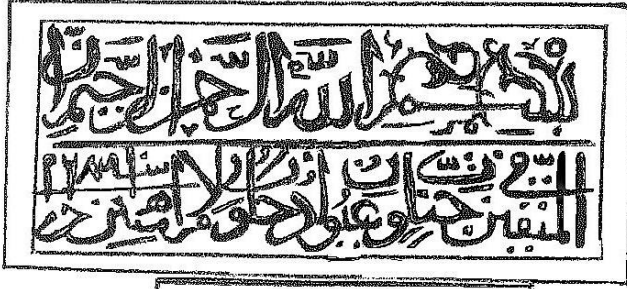 بسم الله الرحمن الرحيم
ان المتقين في جنات وعيون ادخلوها بسلام امنين سنة